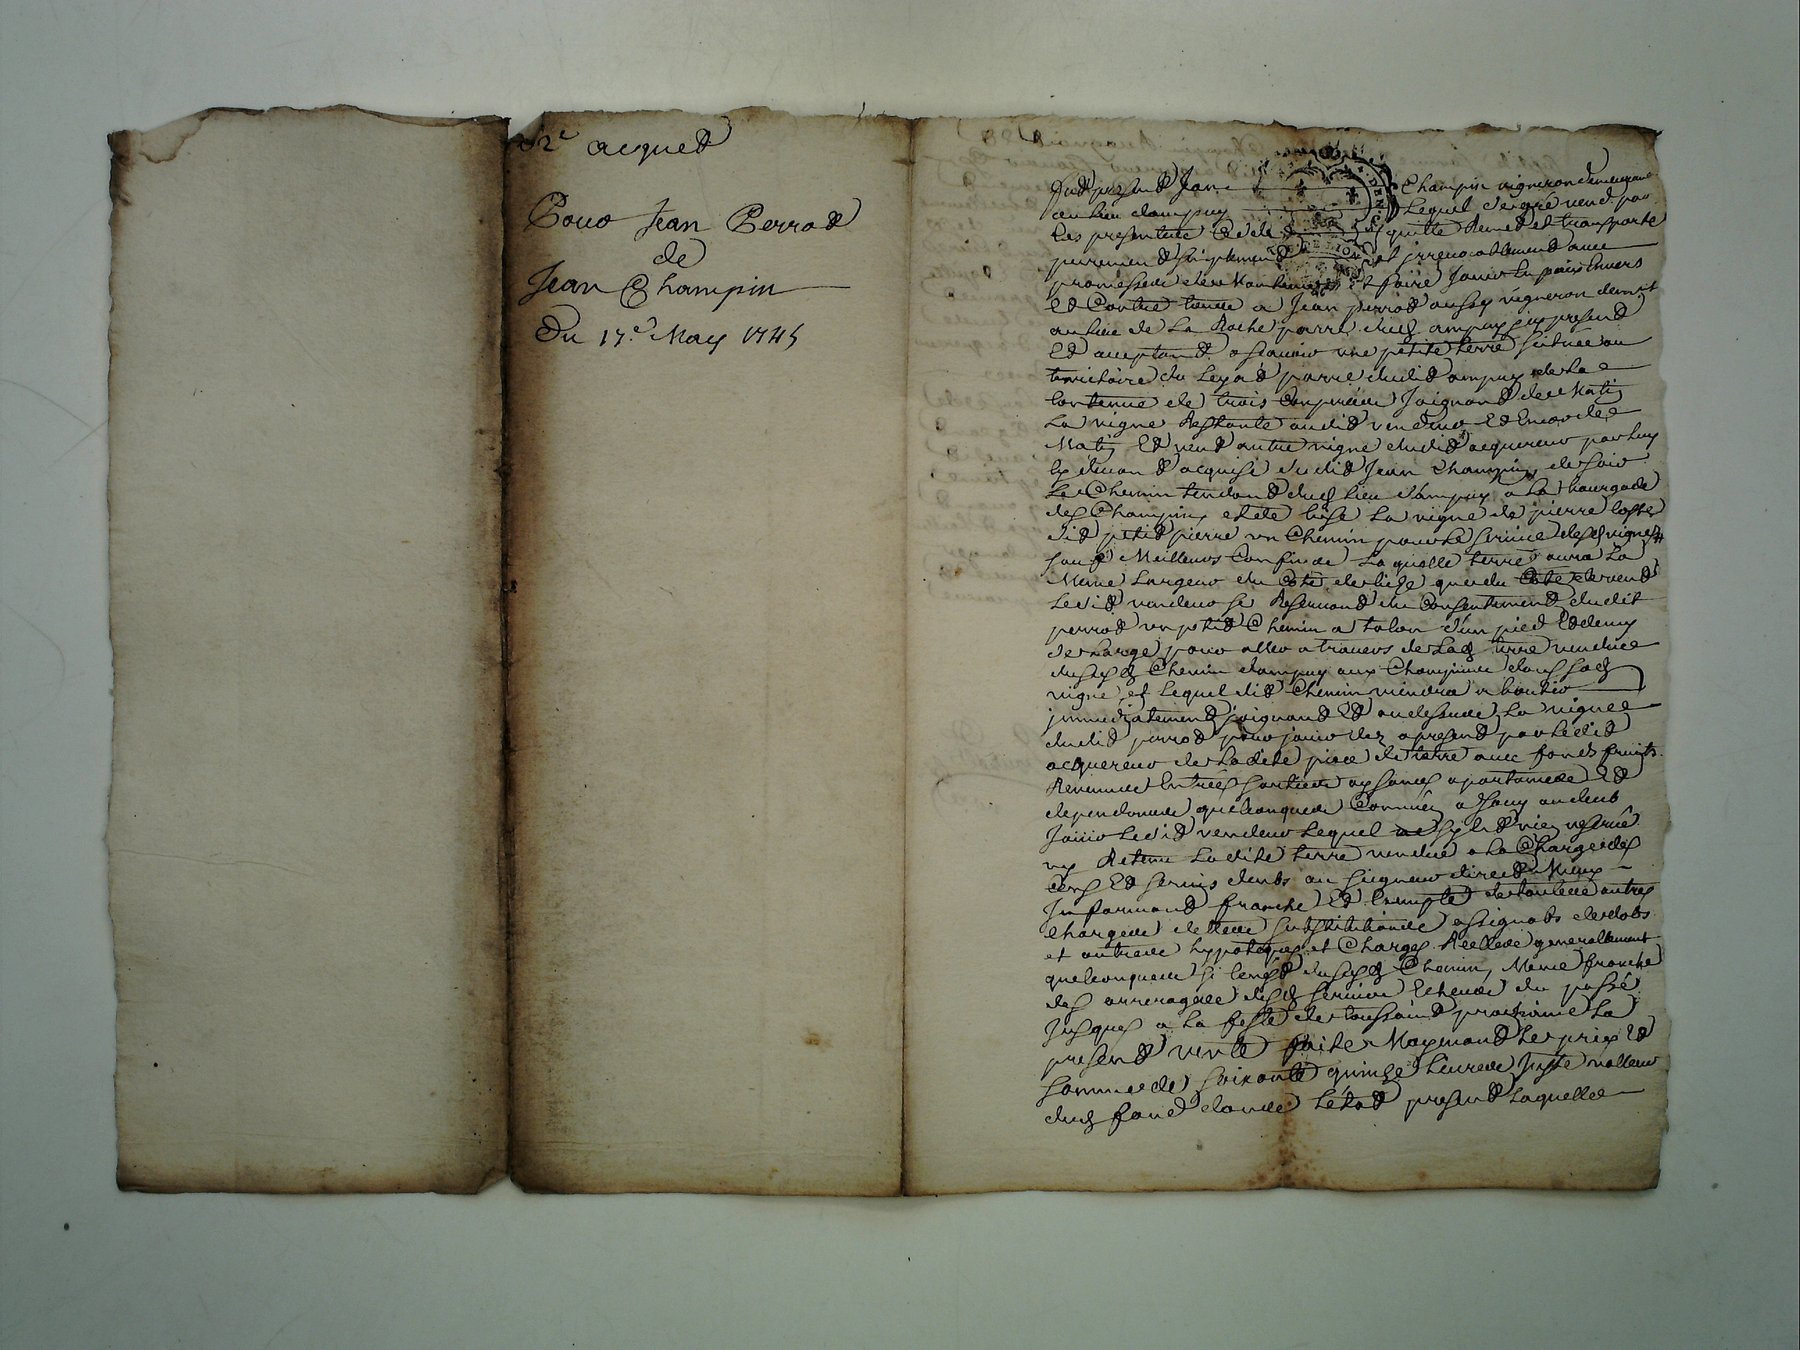 2e acquet
Pour Jean Perrod
de
Jean Champin
Du 17e May 1745
fut présent Jean Champin vigneron demeurant
au lieu dampuy Lequel de gré vend par
Les presentes Cede quitte Remet et transporte
purement simplement et jrrevocablement avec
promesse de Maintenir et faire Jouir En paix Envers
Et Contre tous a Jean perrod aussy vigneron demt
au lieu de La Roche parr. dud ampuy icy present
Et acceptant a scavoir une petite terre scituée au
territoire du Leyat parre dudit ampuy de la
Contenue de trois Joignant de Matin
La vigne Restante audit vendeur Et Encor de
Matin Et vent autre vigne dudit acquereur par luy
Cy devant acquise dudit Jean Champin de soir
Le Chemin tendant dud lieu d'ampuy a La bourgade
des Champins et de bize La vigne de pierre
dit petit pierre un Chemin pour Le service desd vignes
sauf Meilleurs Confins Laquelle terre aura La
Meme Largeur du Coté de bize que du Coté de vent
Ledit vendeur se Reservant du Consentement dudit
perrod un petit Chemin a talon d'un pied Et demy
de Large pour aller a travers de Lad terre vendue
dusd Chemin dampuy aux Champins dans sad
vigne et Lequel dit Chemin viendra aboutir
jmmediatement joignant Et audessus La vigne
dudit perrod pour jouir des apresent par Ledit
acquereur de Ladite piece de terre avec fonds fruits
Revenus Entrées sorties aysances apartenances Et
dependances quelconques Comme a Jouy ou deub
Jouir Ledit vendeur Lequel rien reservé
ny Retenu Ladite terre vendue a La Charge des
Cens Et servis deubs au seigneur direct Mieux
Informant franche Et Exempte de toutes autres
Charges dettes substitutions assignats de dots
et autres hypoteques et Charges Reelles generallement
quelconques si Chemin Meme franche
des arrerages desd servis Echeus du passé
Jusques a La feste de toussaint prochaine La
present vente faite Moyenant Le prix Et
somme de soixante quinze Livres Juste valleur
dud fond dans Létat present Laquelle